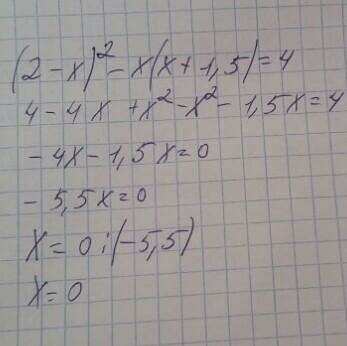 (2-x)²-x(x+1,5)=4
4-4x+x²-x²-1,5x=4
-4x-1,5x=0
-5,5x=0
x=0:(-5,5)
x=0